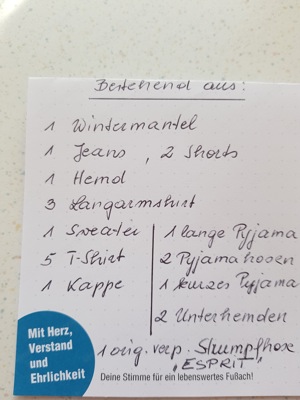 Bestehend aus:
1 Wintermantel
1 Jeans, 2 Shorts
1 Hemd
3 Langarmshirt
1 Sweater
5 T-Shirt
1 Kappe
1 lange Pyjama
2 Pyjamahosen
1 kurzes Pyjama
2 Unterhemden
1 orig. verp. Strumpfhose
"ESPRIT"
Mit Herz,
Verstand
und
Ehrlichkeit
Deine Stimme für ein lebenswertes Fußach!